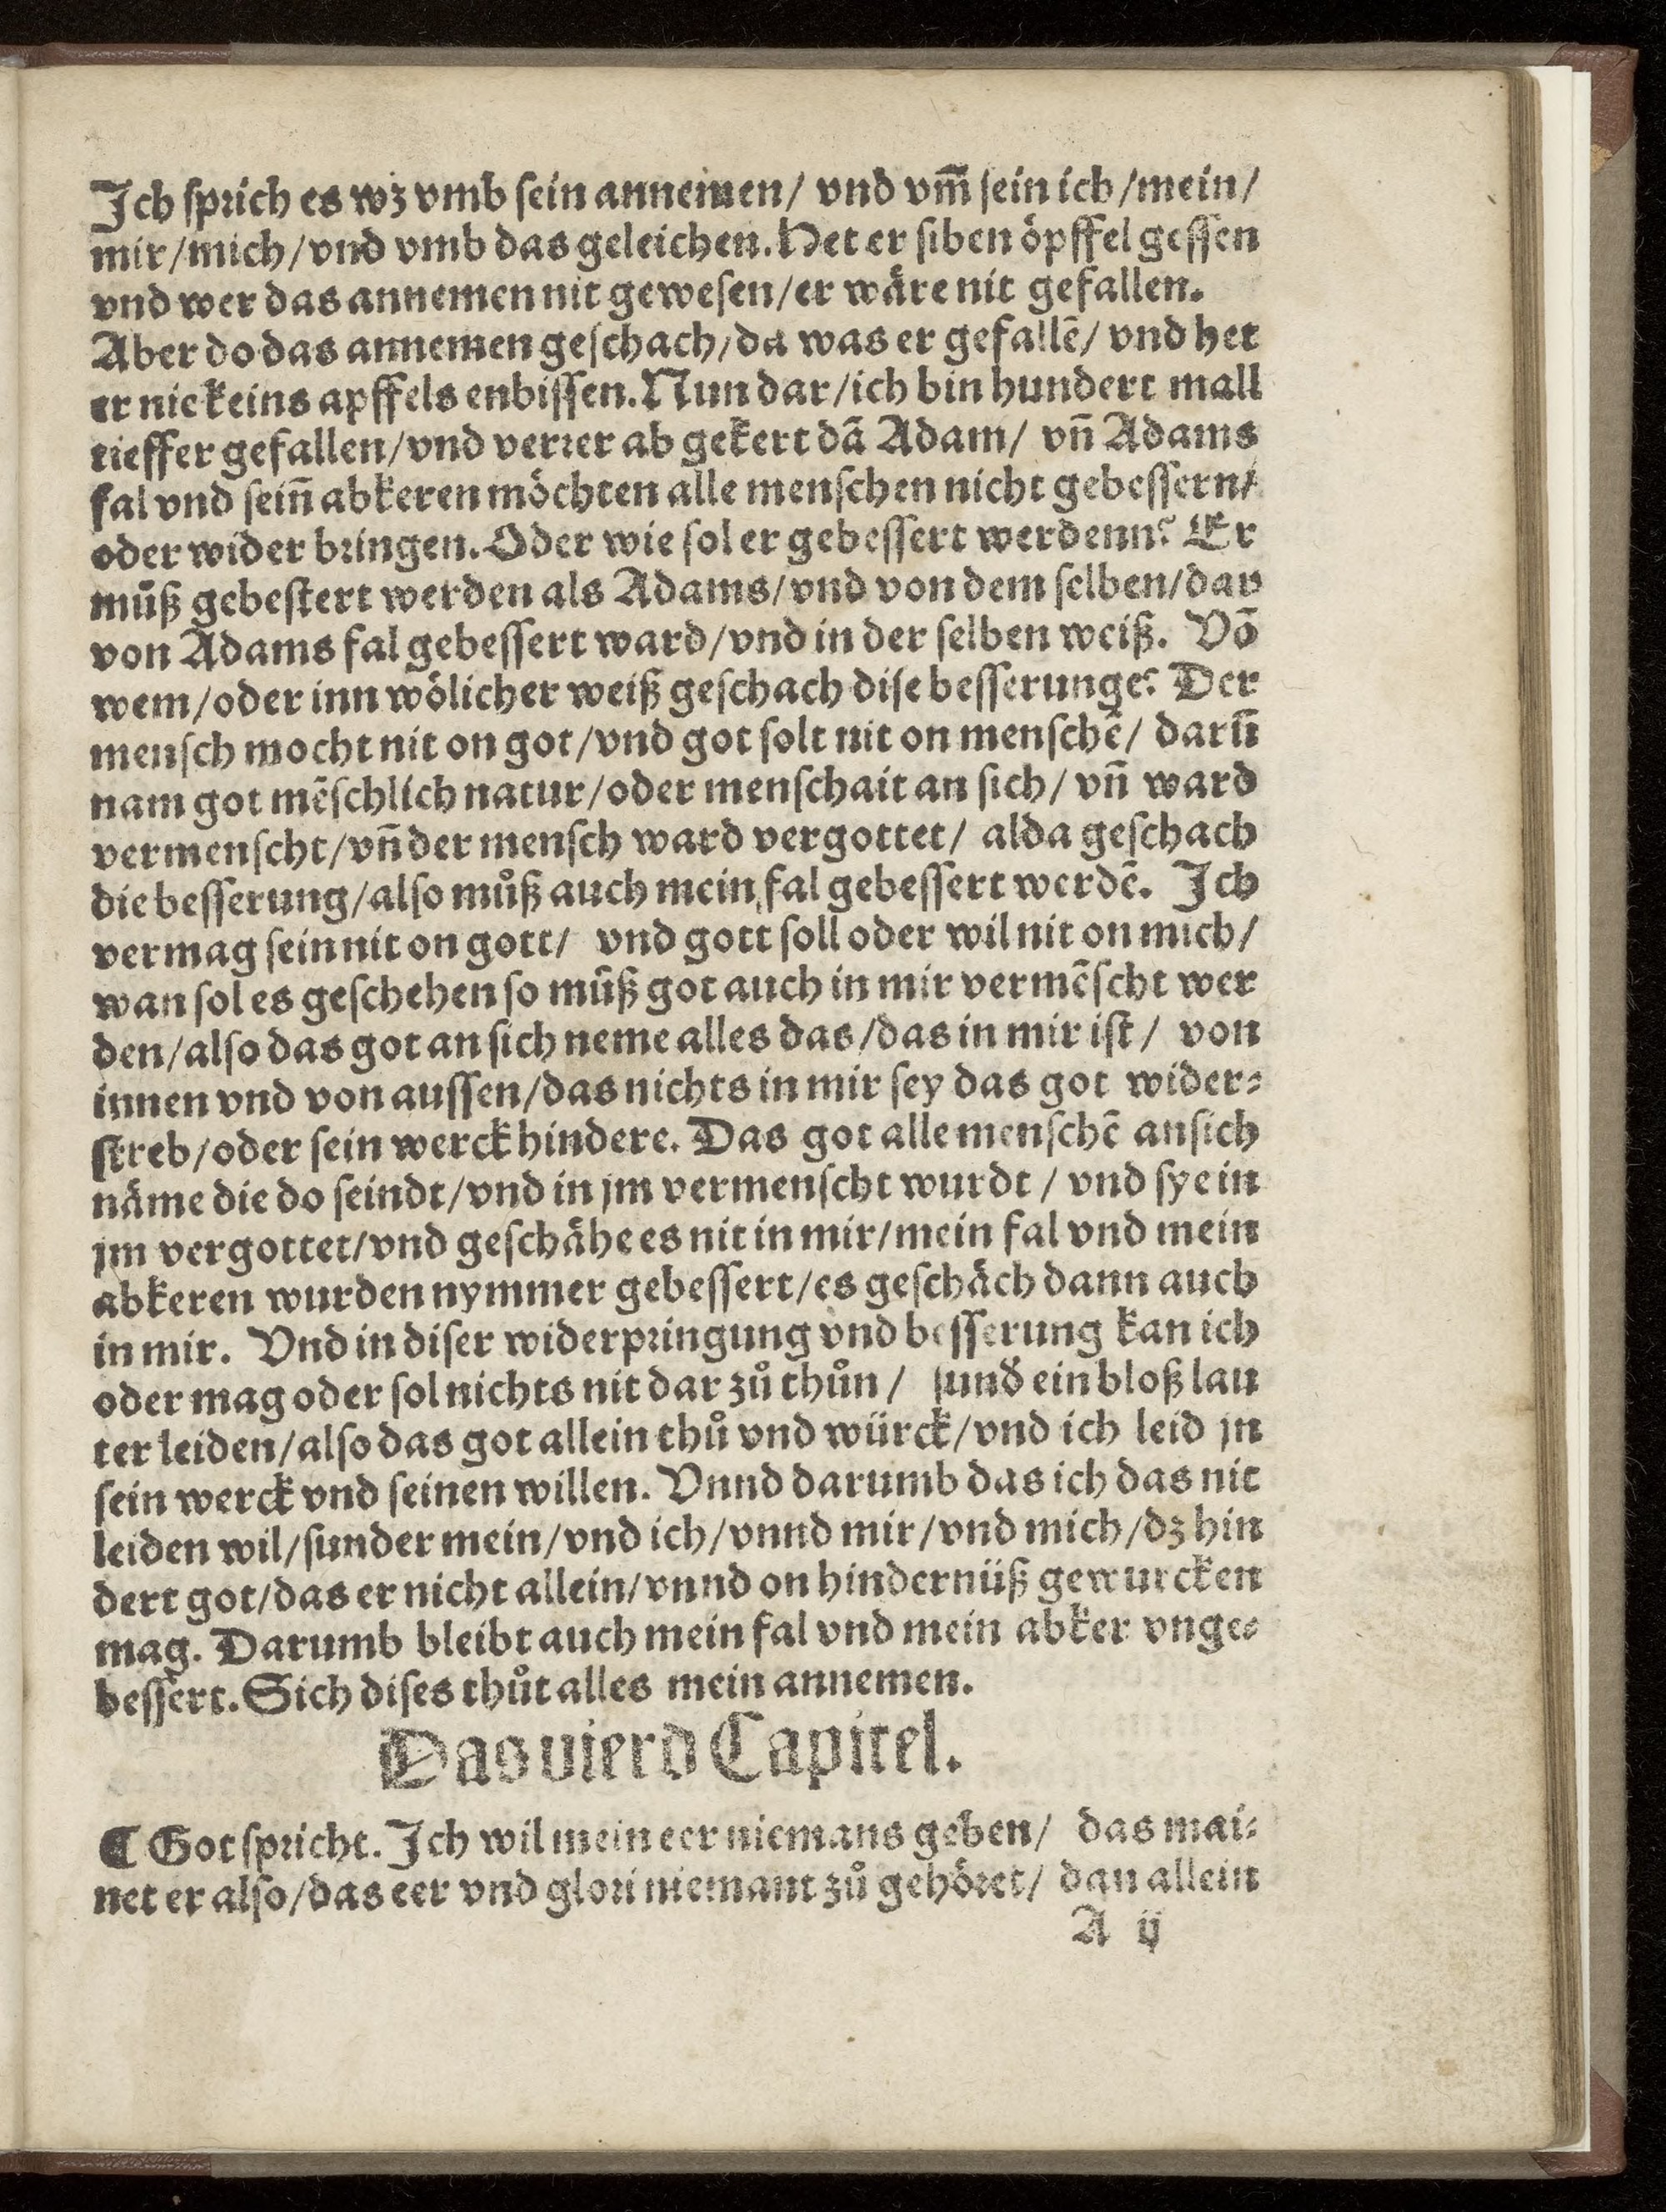 Ich ſprich es wz vmb ſein annemen/ vnd vm̃ ſein ich/mein/
mir/mich/vnd vmb das geleichen. Het er ſiben öpffel geſſen
vnd wer das annemen nit geweſen/er wäre nit gefallen.
Aber do das annemen geſchach/da was er gefallē/ vnd het
er nie keins apffels enbiſſen. Nun dar/ich bin hundert mall
tieffer gefallen/vnd verrer ab gekert dā Adam/ vn̄ Adams
fal vnd ſein̄ abkeren möchten alle menſchen nicht gebeſſern/
oder wider bringen. Oder wie ſol er gebeſſert werdenn? Er
můß gebeſtert werden als Adams/vnd von dem ſelben/dar
von Adams fal gebeſſert ward/vnd in der ſelben weiß. Vō
wem/oder inn wölicher weiß geſchach diſe beſſerunge? Der
menſch mocht nit on got/vnd got ſolt nit on menſchē/ darū
nam got mēſchlich natur/oder menſchait an ſich/ vn̄ ward
vermenſcht/vn̄ der menſch ward vergottet/ alda geſchach
die beſſerung/alſo můß auch mein fal gebeſſert werdē. Ich
vermag ſein nit on gott/ vnd gott ſoll oder wil nit on mich/
wan ſol es geſchehen ſo můß got auch in mir vermēſcht wer
den/alſo das got an ſich neme alles das/das in mir iſt/ von
innen vnd von auſſen/das nichts in mir ſey das got wider⸗
ſtreb/oder ſein werck hindere. Das got alle menſchē anſich
näme die do ſeindt/vnd in jm vermenſcht wurdt/ vnd ſye in
jm vergottet/vnd geſchähe es nit in mir/mein fal vnd mein
abkeren wurden nymmer gebeſſert/es geſchäch dann auch
in mir. Vnd in diſer widerpringung vnd beſſerung kan ich
oder mag oder ſol nichts nit dar zů thůn/ ſund̕ ein bloß lau
ter leiden/alſo das got allein thů vnd würck/vnd ich leid jn
ſein werck vnd ſeinen willen. Vnnd darumb das ich das nit
leiden wil/ſunder mein/vnd ich/vnnd mir/vnd mich/dz hin
dert got/das er nicht allein/vnnd on hindernüß gewurcken
mag. Darumb bleibt auch mein fal vnd mein abker vnge⸗
beſſert. Sich diſes thůt alles mein annemen.
Das vierd Capitel.
¶ Got ſpricht. Ich wil mein eer niemans geben/ das mai⸗
net er alſo/das eer vnd glori niemant zů gehöret/ dan allein
A ij